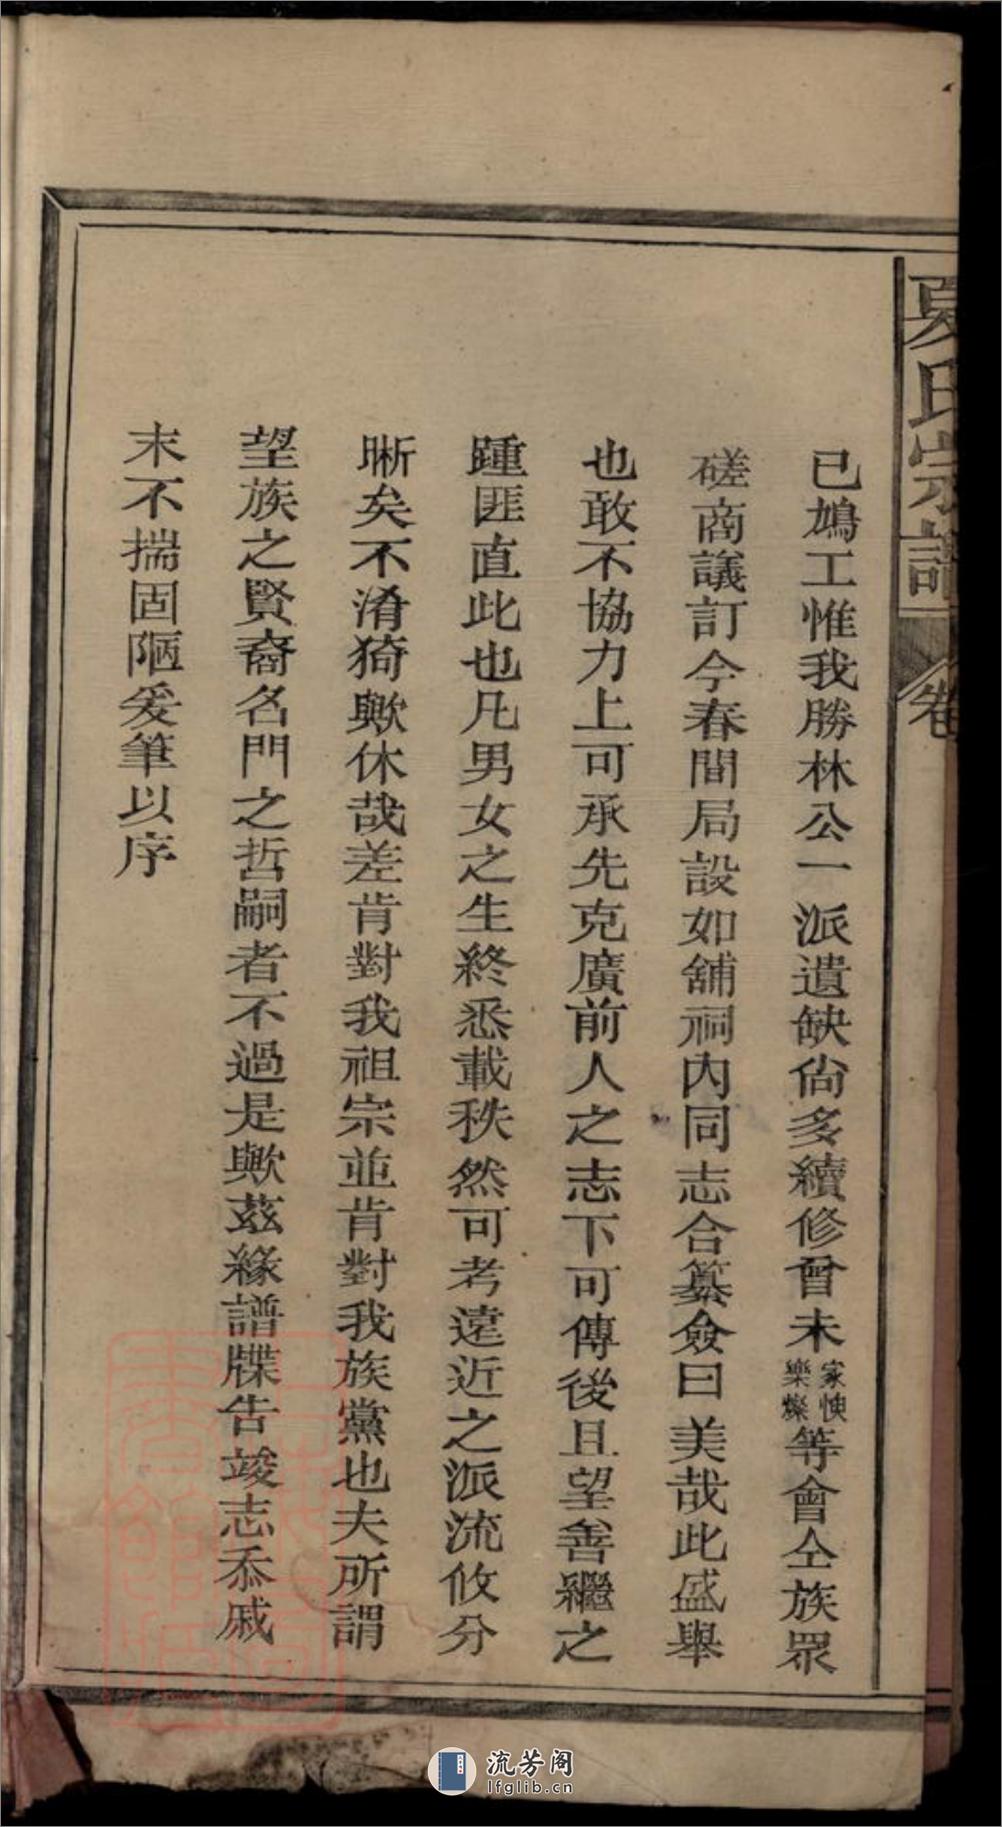 夏氏宗譜 卷
已鳩工惟我勝林公一派遺缺尙多續修曾未家懊樂燦等會仝族眾
磋商議訂今春間局設如舖祠內同志合纂僉曰美哉此盛舉
也敢不協力上可承先克廣前人之志下可傳後且望善繼之
踵匪直此也凡男女之生終悉載秩然可考遠近之派流攸分
晰矣不淆猗歟休哉差肯對我祖宗並肯對我族黨也夫所謂
望族之賢裔名門之哲嗣者不過是歟茲緣譜牒告竣志忝戚
末不揣固陋爰筆以序
流芳阁
lfglib.cn